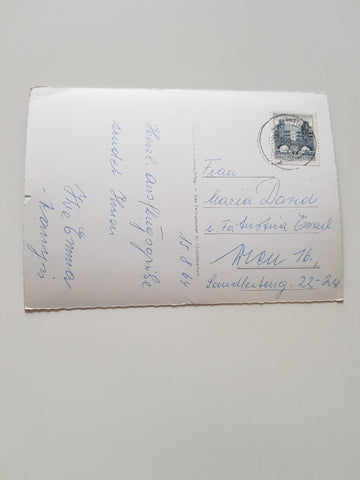 15.8.64
Herzl. Ausflugsgrüße
sendet Ihnen
Ihre Emma
Frau
Maria David
i Fa Austria Email
Wien 16.,
Sandleiteng. 22-24